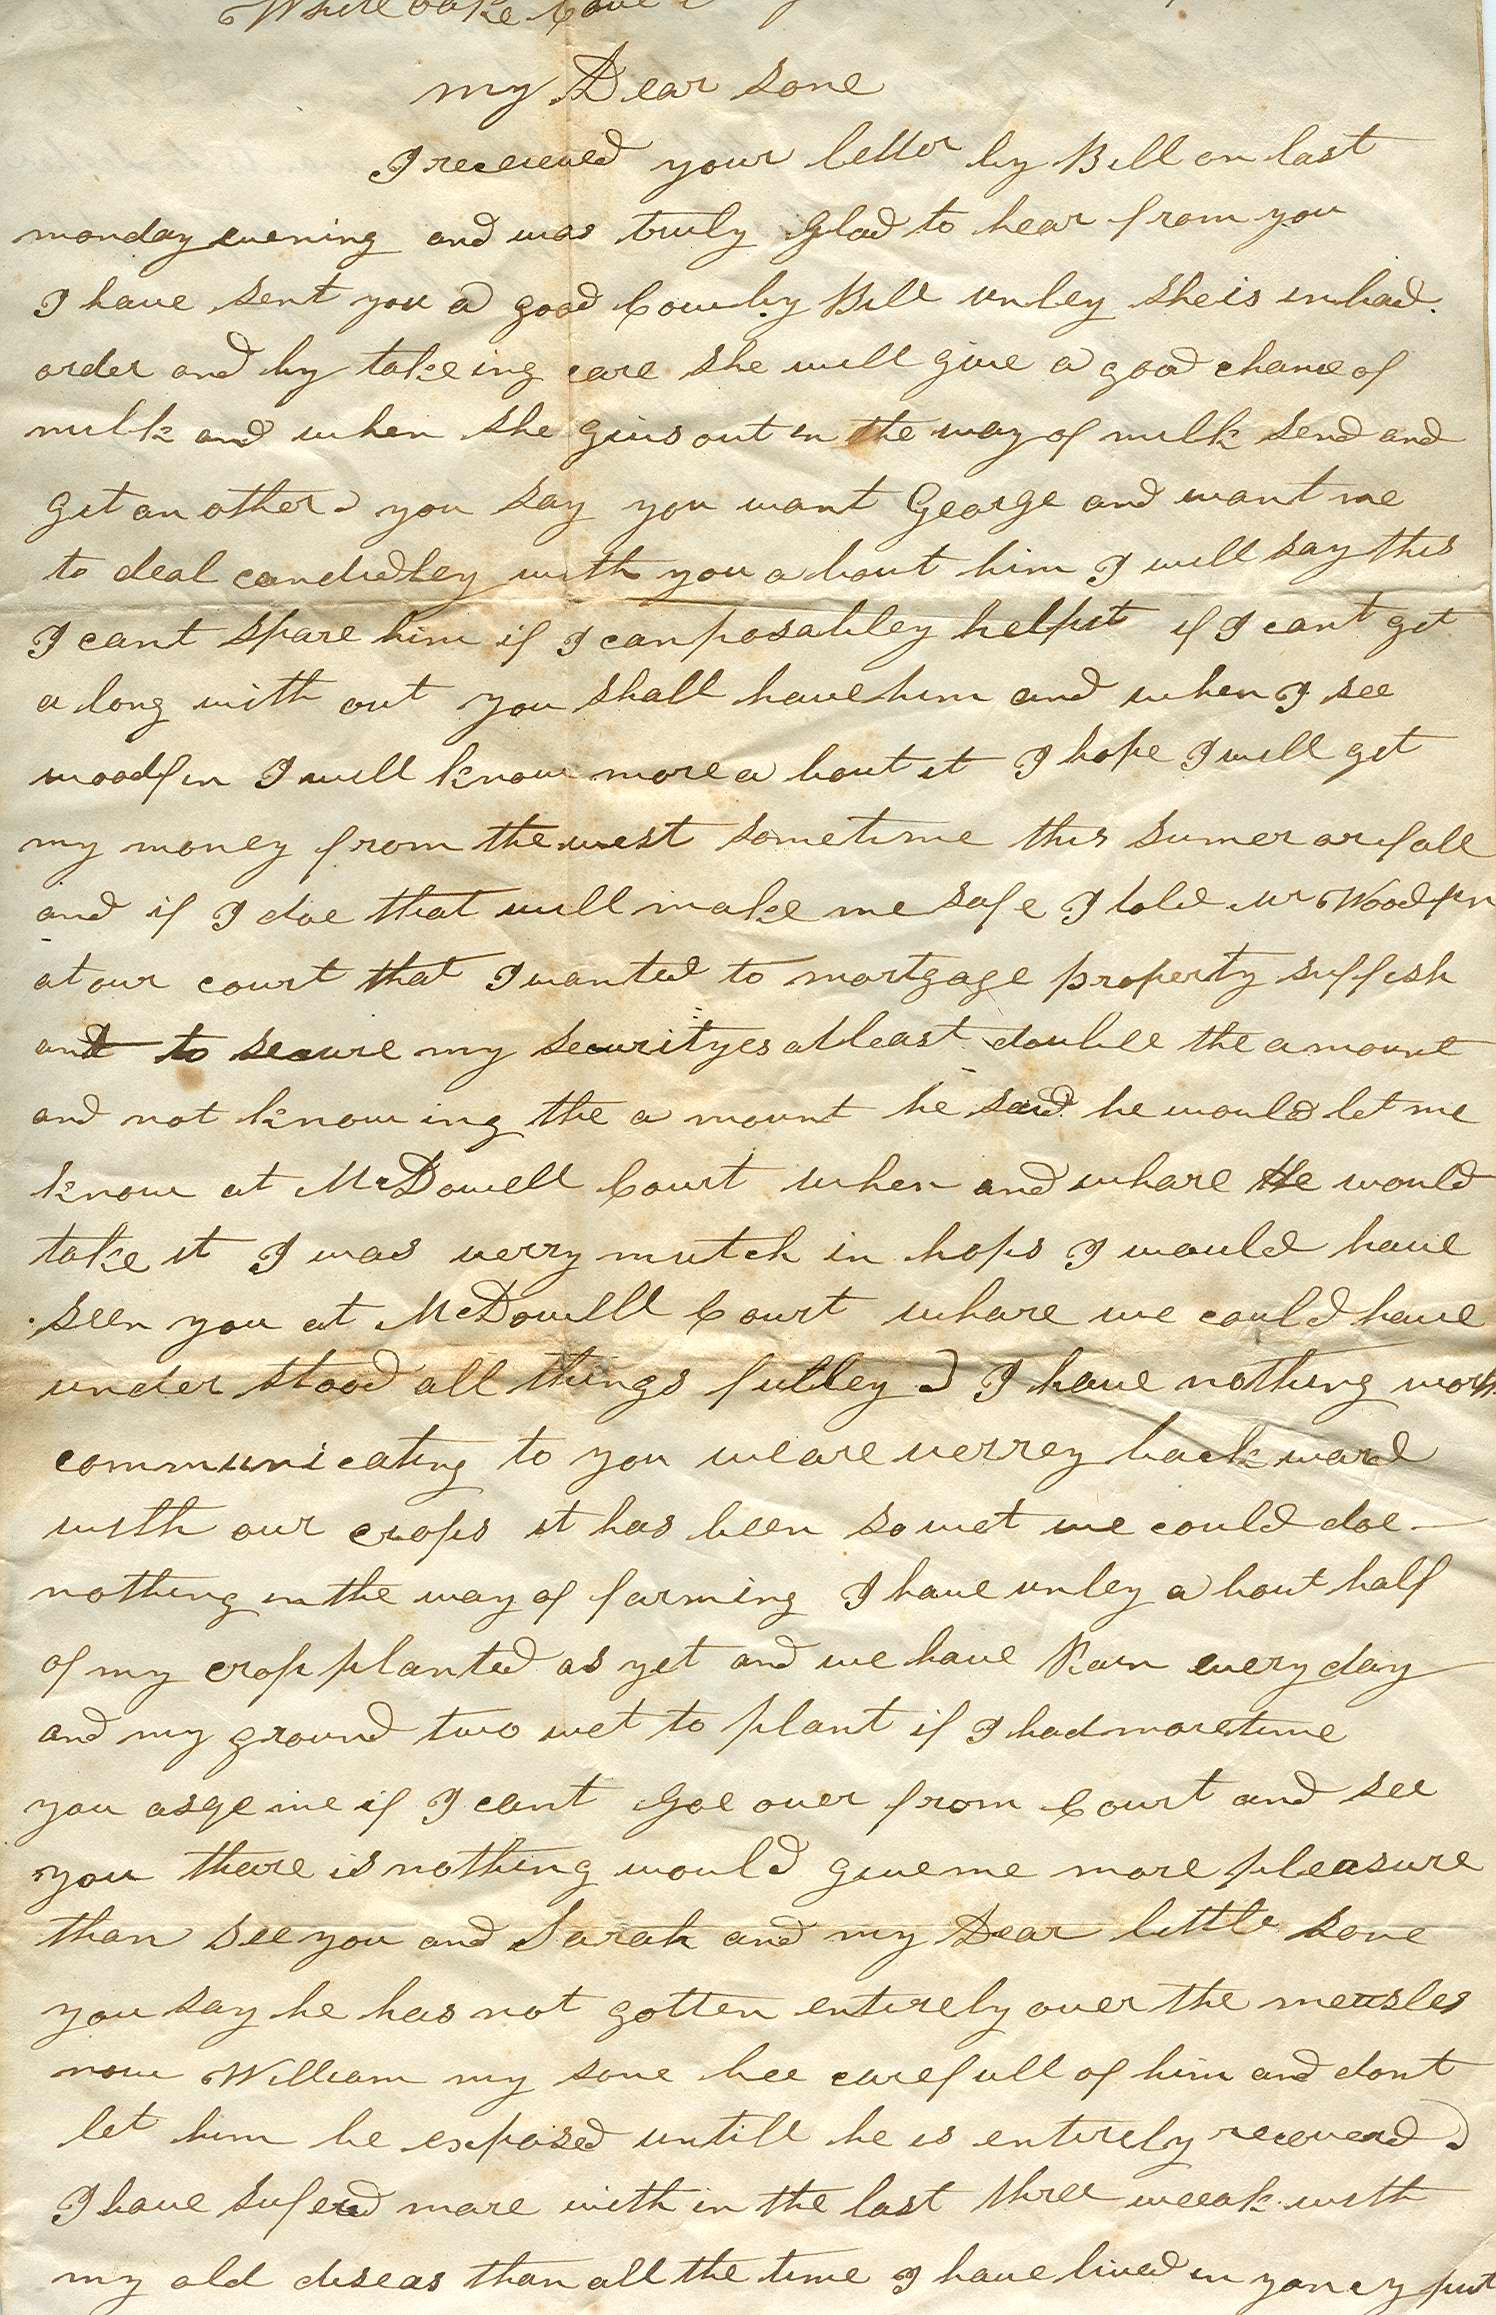 White oake
my Dear sone
I received your letter by Bill on last
monday evening and was truly glad to hear from you
I have sent you a good Cow by Bill unley she is in bad
order and by takeing care she will give a good chance of
milk and when she givs out in the way of milk send and
git an other you say you want George and want me
to deal candidley with you a bout him I will say this
I cant spare him if I can posabley helpit if I cant git
a long with out you shall have him and when I see
woodfin I will know more a bout it I hope I will git
my money from the west sometime this sumer or fall
and if I doe that will make me safe I told mr Woodfin
at our court that I wanted to mortgage property suffish
ant to secure my securityes atleast double the amount
and not know ing the a mount he said he would let me
know at McDowell Court when and whare He would
take it I was verry mutch in hops I would have
seen you at McDowell Court whare we could have
under stood all things fulley I have nothing worth
communicating to you we are verrey back ward
with our crops it has been so wet we could doe
nothing in the way of farming I have unley a bout half
of my crop planted as yet and we have Rain every day
and my ground two wet to plant if I had more time
you asqe me if I cant goe over from Court and see
you theare is nothing would give me more pleasure
than see you and Sarah and my Dear little sone
you say he has not gotten entirely over the measles
now William my sone bee carefull of him and dont
let him be exposed untill he is entirely recoverd
I have suferd more with in the last three weeak with
my old diseas than all the time I have lived in yancy put